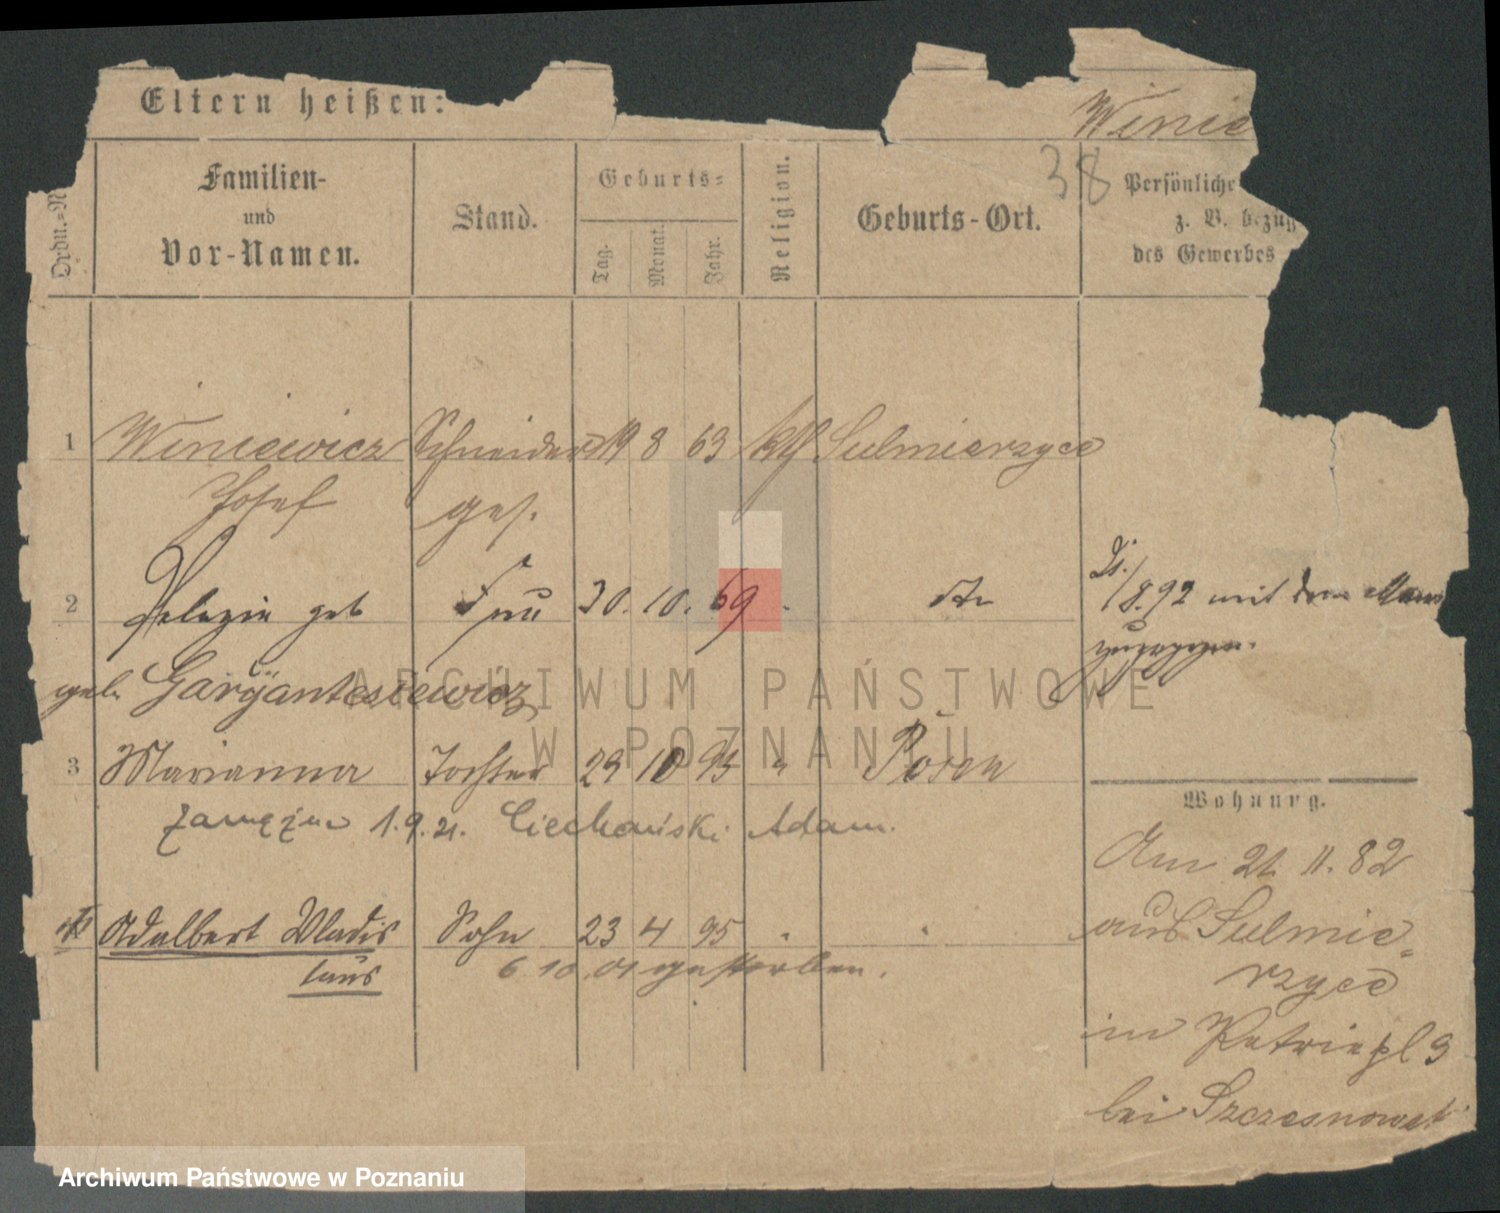 Eltern heißen:
Winie
38
Ordn.=N
Familien-
und
Vor-Namen.
Stand.
Geburts=
Tag.
Monat.
Jahr.
Religion.
Geburts-Ort.
Persönliche
z. B. bezüg
des Gewerbes
1 Winiewicz Schneider 19 8 63 kth Sulmierzyce
Josef ges.
2 Pelagia geb Frau 30. 10. 69 " dto
/8.92 mit dem Mann
zugezogen.
geb.
3 Marianna Tochter 29 10 93 " Posen
zamężna 1.9.21. Ciechański Adam.
Wohnung.
Am 21. 11. 82
aus Sulmie=
rzyce
in Petriepl 3
bei
Adalbert Wladis Sohn 23 4 95 " "
laus
6 10.01 gestorben.
ARCHIWUM PAŃSTWOWE
W POZNANIU
Archiwum Państwowe w Poznaniu